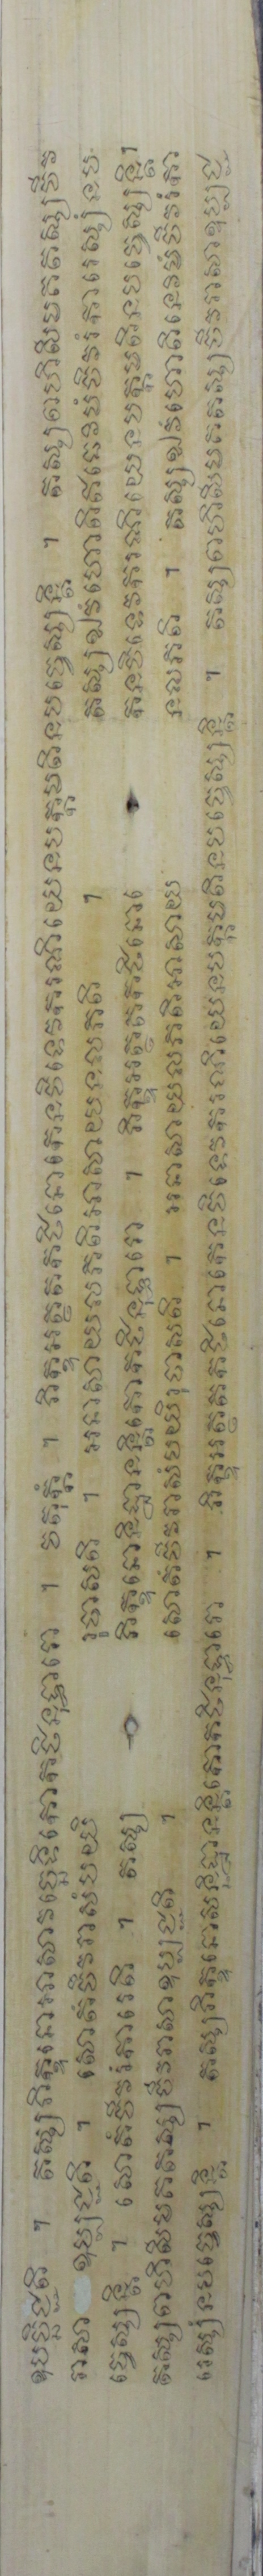 ឧបច្ឆិជ្ជតិ ។ តស្សភិក្ខុនោអាសាវច្ឆេទិកោកថិនុទ្ធារោ ។ ចតុក្កំ ។ ភិក្ខុអត្ថតកថិនោកេនចិទេវករណីយេនបក្កមតិនបច្ចេស្សន្តិ ។ តស្សពហិសីមគតស្សចីវ
រាសា ឧប្បជ្ជតិ ។ សោតំចីវរាសំបយិ រុបាសតិ ។ អនាសាយលភតិអាសាយនលភតិ ។ តស្សឯវំហោតិឥធេវិមំចីវរំការេស្សំនប
ច្ចេស្សន្តិ ។ សោតំចីវរំការេតិ ។ តស្ស ភិក្ខុនោនិដ្ឋានន្តិកោកថិនុទ្ធារោ ។ ភិក្ខុអត្ថតកថិនោកេ នចិទេវករណីយេនបក្កមតិនបច្ចេស្សន្តិ។
តស្សពហិសីមគតស្សចីវរាសាឧប្បជ្ជតិ ។ សោតំចីវរាសំបយិរុបាសតិ ។ អនាសាយលភតិអាសាយ នលភតិ ។ តស្សឯវំហោតិនេវិមំចីវរំកា
រេស្សំនបច្ចេស្សន្តិ ។ តស្សភិក្ខុនោសន្និដ្ឋានន្តិកោកថិនុទ្ធារោ ។ ភិក្ខុអត្ថតកថិនោកេនចិទេវករណីយេនបក្កមតិនបច្ចេស្សន្តិ ។ តស្សពហិសីមគតស្សចីវរាសាឧប្បជ្ជ